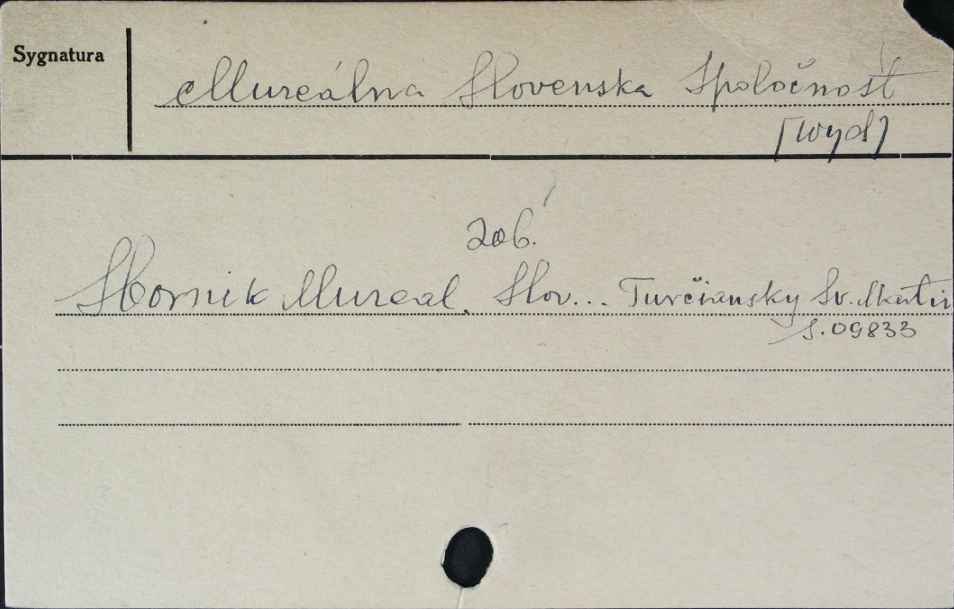 Sygnatura
Muzeálna Slovenska Spoločnosť
[wyd]
zob.
Sbornik Muzeal. Slov... Turčiansky Sv. Martin
S.09833